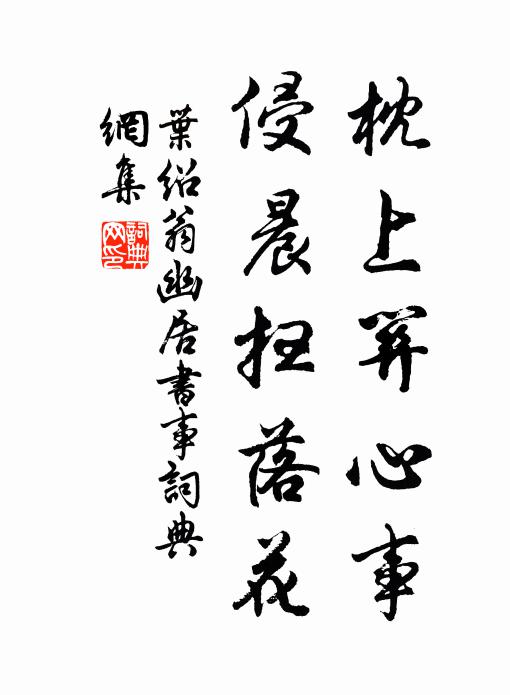 枕上關心事
侵晨掃落花
葉紹翁幽居書事詞典
網集
詞典
网印